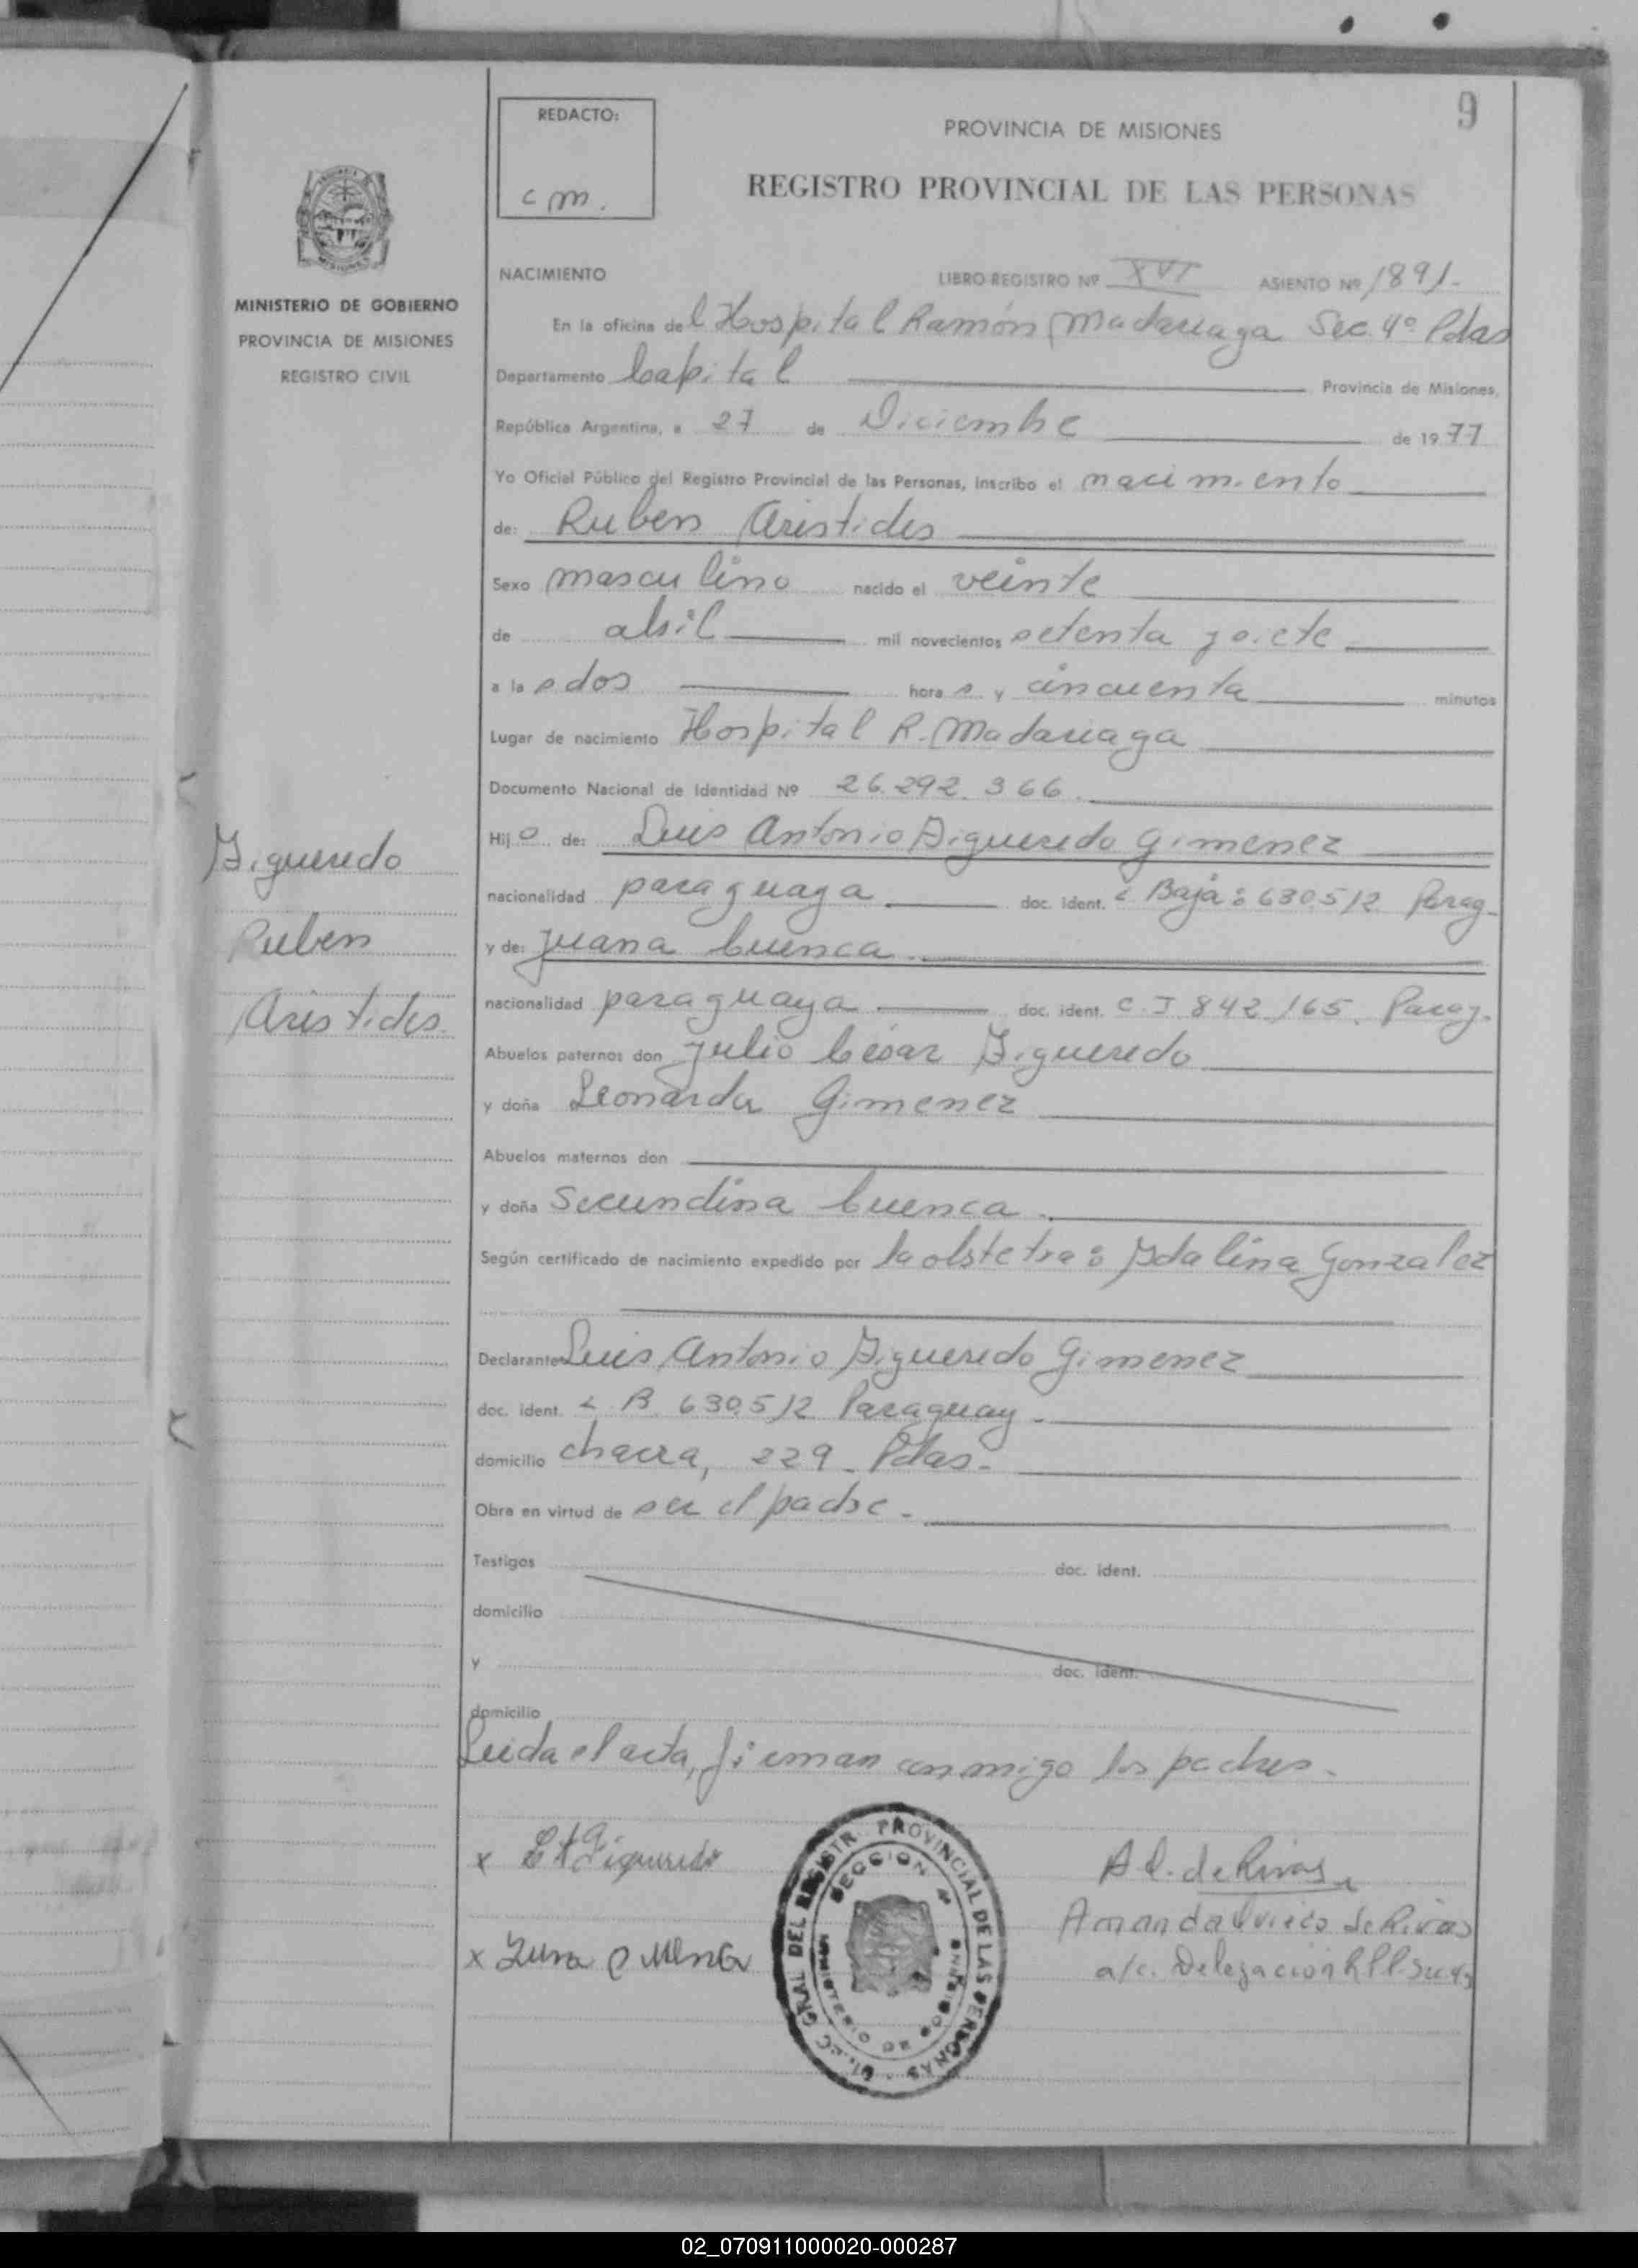 9
REDACTO:
c m.
PROVINCIA DE MISIONES
REGISTRO PROVINCIAL DE LAS PERSONAS
MINISTERIO DE GOBIERNO
PROVINCIA DE MISIONES
REGISTRO CIVIL
NACIMIENTO LIBRO REGISTRO Nº XVI ASIENTO Nº 1891-
En la oficina del Hospital Ramón Madariaga Sec. 4º Pdas
Departamento Capital Provincia de Misiones,
República Argentina, a 27 de Diciembre de 1977
Yo Oficial Público del Registro Provincial de las Personas, inscribo el nacimiento
de: Ruben Aristides
Sexo masculino nacido el veinte
de abril mil novecientos setenta y siete
a las dos horas y cincuenta minutos
Lugar de nacimiento Hospital R. Madariaga
Documento Nacional de Identidad Nº 26.292.366.
Hijo de: Luis Antonio Figueredo Gimenez
nacionalidad paraguaya doc. ident. L Baja: 630.512 Parag-
y de: Juana Cuenca
nacionalidad paraguaya doc. ident. C. I 842.165. Parag.
Abuelos paternos don Julio César Figueredo
y doña Leonarda Gimenez
Abuelos maternos don
y doña Secundina Cuenca.
Según certificado de nacimiento expedido por la obstetra: Idalina Gonzalez
Declarante Luis Antonio Figueredo Gimenez
doc. ident. L. B. 630.512 Paraguay-
domicilio chacra, 229- Pdas-
Obra en virtud de ser el padre-
Testigos doc. ident.
domicilio
y doc. ident.
domicilio
Leida el acta, firman conmigo los padres-
Figueredo
Ruben
Aristides
x L A Figueredo
x
A Q. de Rivas
Amanda Oviedo de Rivas
a/c. Delegación R P P
DIREC GRAL DEL REGISTR. PROVINCIAL DE LAS PERSONAS
SECCION 4
MINISTERIO DE GOBIERNO
02_070911000020-000287